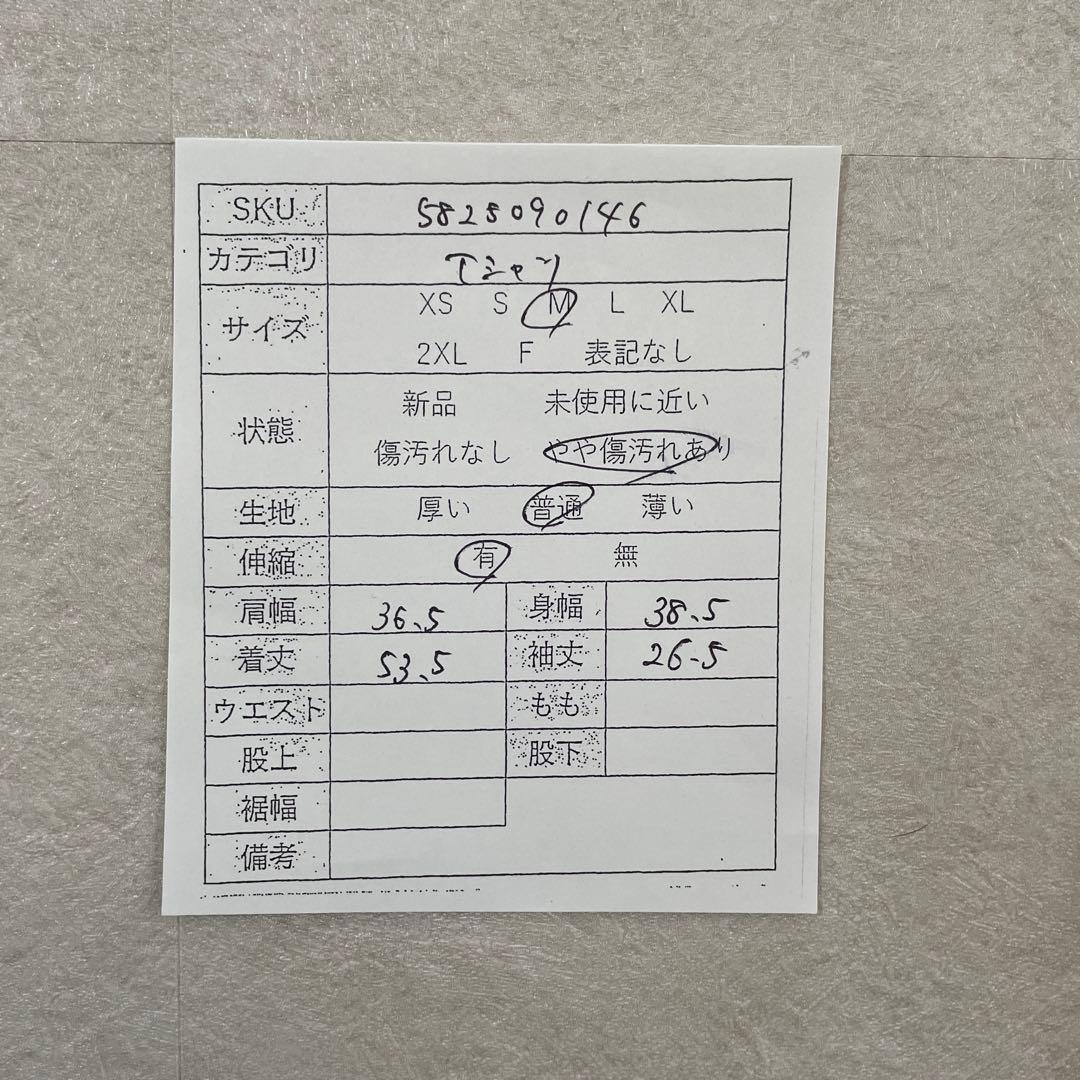 SKU 5825090146
カテゴリ Tシャツ
サイズ XS S M L XL
2XL F 表記なし
状態 新品 未使用に近い
傷汚れなし やや傷汚れあり
生地 厚い 普通 薄い
伸縮 有 無
肩幅 36.5 身幅 38.5
着丈 53.5 袖丈 26.5
ウエスト もも
股上 股下
裾幅
備考